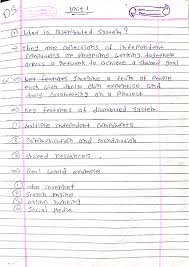 DS
Unit 1
① What is Distributed System?
→ They are collections of independent
computers or programs working together
across a network to achieve a shared goal
key features imagine a team of people
each with their own expertise and
tools collaborating on a project
→ key features of distributed system
① multiple independent components
② communication and coordination
③ shared resources
→ Real world example
① the internet
② search engine
③ online banking
④ social media